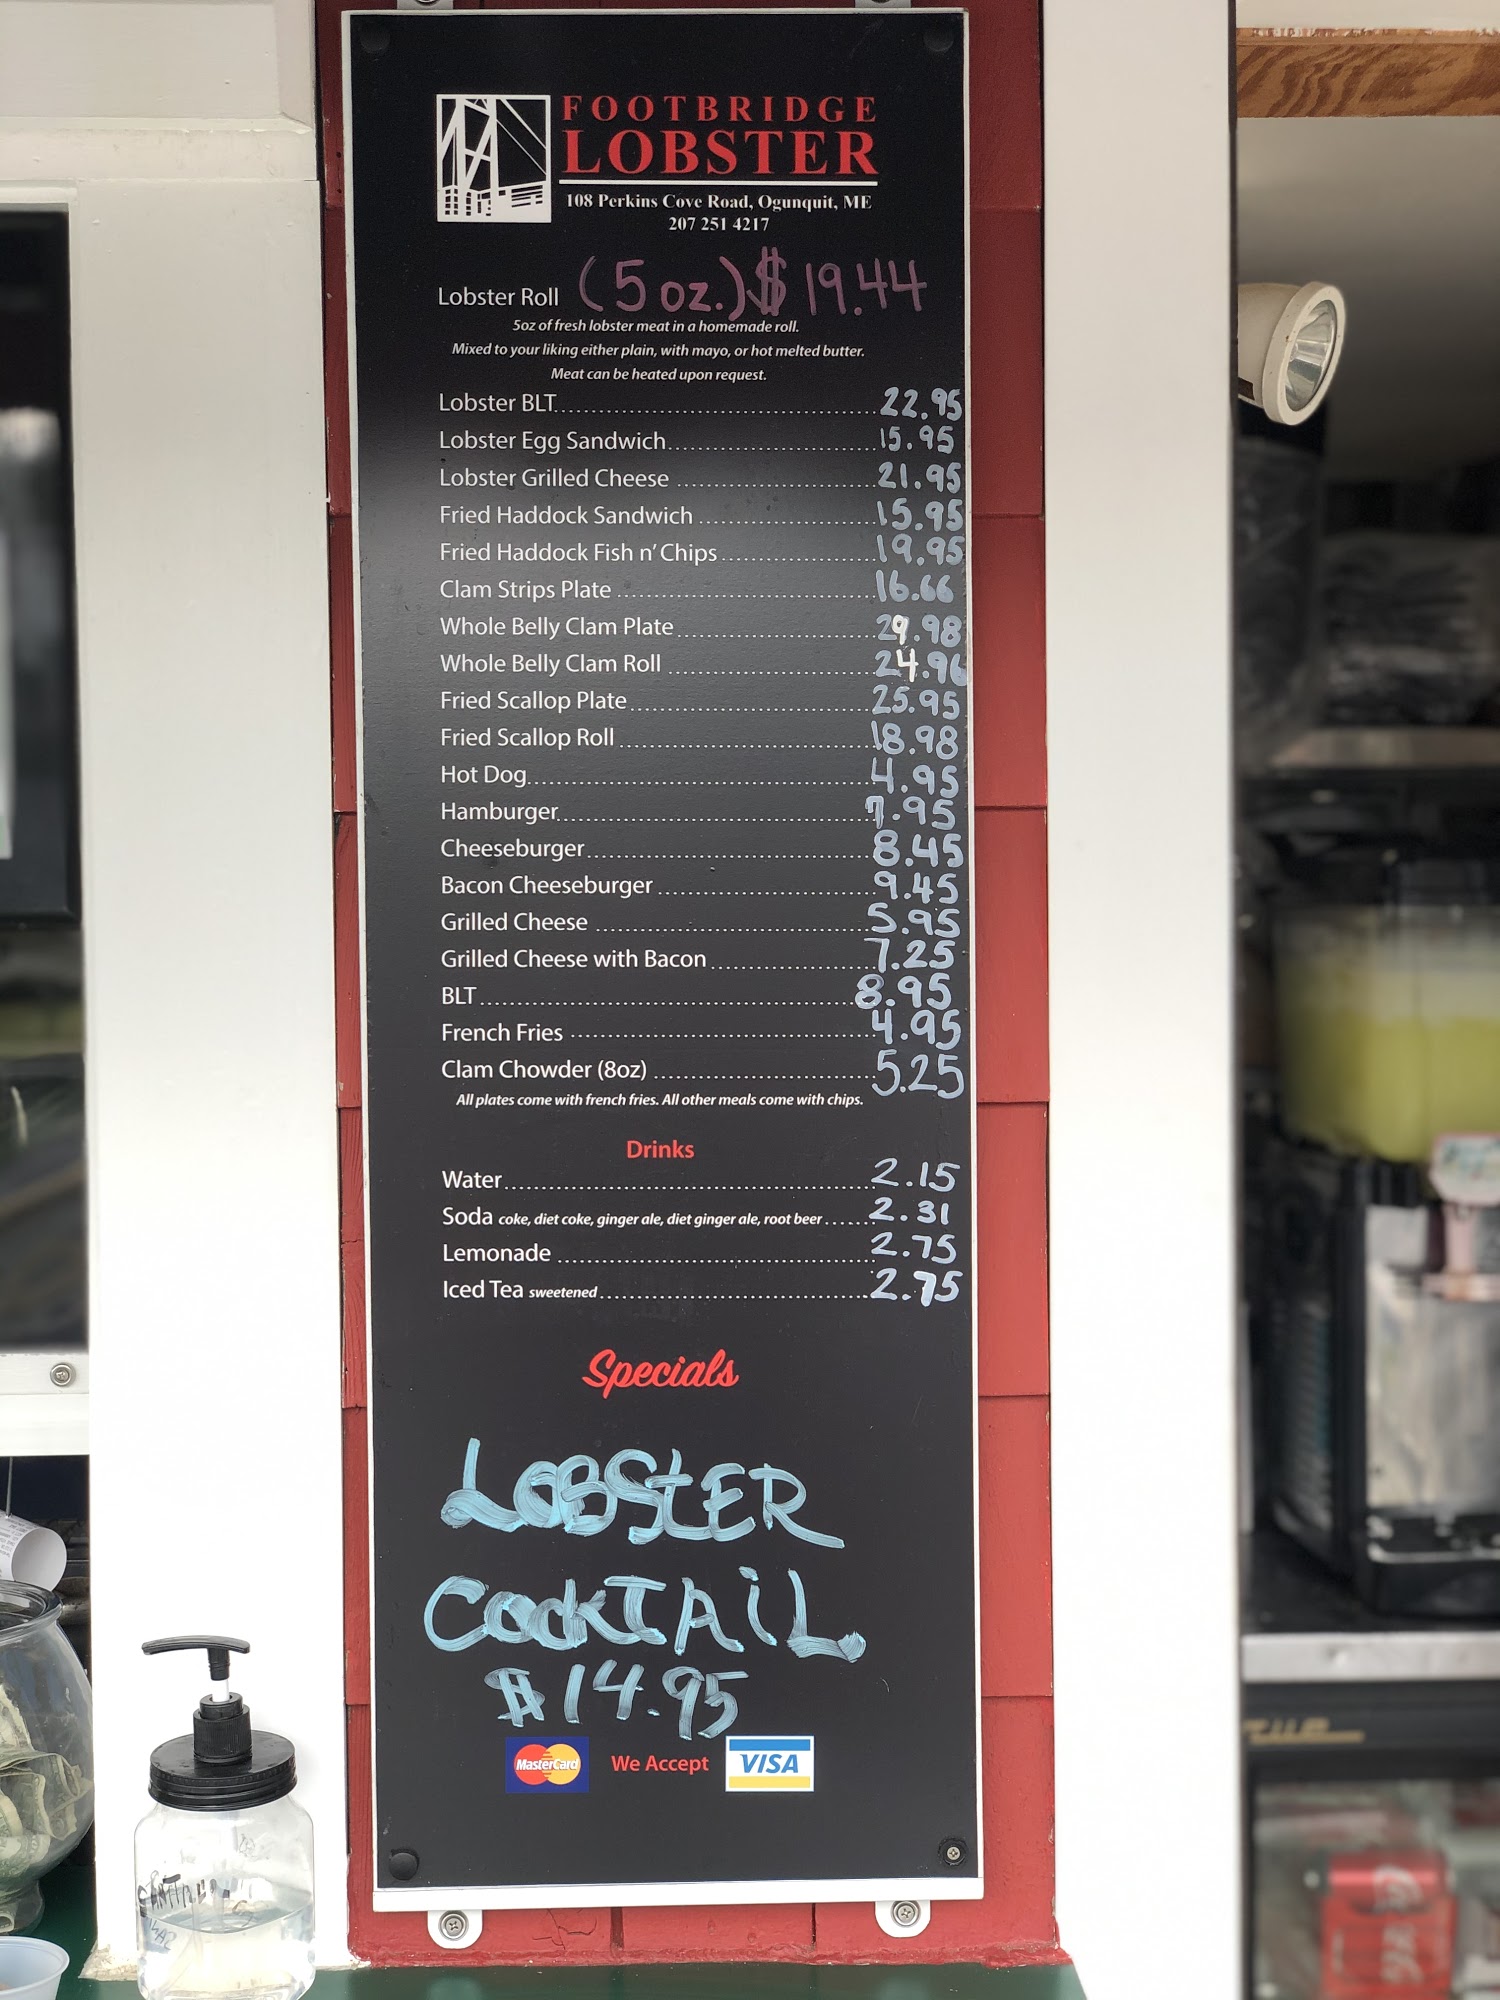 FOOTBRIDGE
LOBSTER
108 Perkins Cove Road, Ogunquit, ME
207 251 4217
Lobster Roll (5 oz.) $ 19.44
5oz of fresh lobster meat in a homemade roll.
Mixed to your liking either plain, with mayo, or hot melted butter.
Meat can be heated upon request.
Lobster BLT 22.95
Lobster Egg Sandwich 15.95
Lobster Grilled Cheese 21.95
Fried Haddock Sandwich 15.95
Fried Haddock Fish n' Chips 19.95
Clam Strips Plate 16.66
Whole Belly Clam Plate 29.98
Whole Belly Clam Roll 24.96
Fried Scallop Plate 25.95
Fried Scallop Roll 18.98
Hot Dog 4.95
Hamburger 7.95
Cheeseburger 8.45
Bacon Cheeseburger 9.45
Grilled Cheese 5.95
Grilled Cheese with Bacon 7.25
BLT 8.95
French Fries 4.95
Clam Chowder (8oz) 5.25
All plates come with french fries. All other meals come with chips.
Drinks
Water 2.15
Soda coke, diet coke, ginger ale, diet ginger ale, root beer 2.31
Lemonade 2.75
Iced Tea sweetened 2.75
Specials
LOBStER
CockTAiL
$14.95
MasterCard We Accept VISA